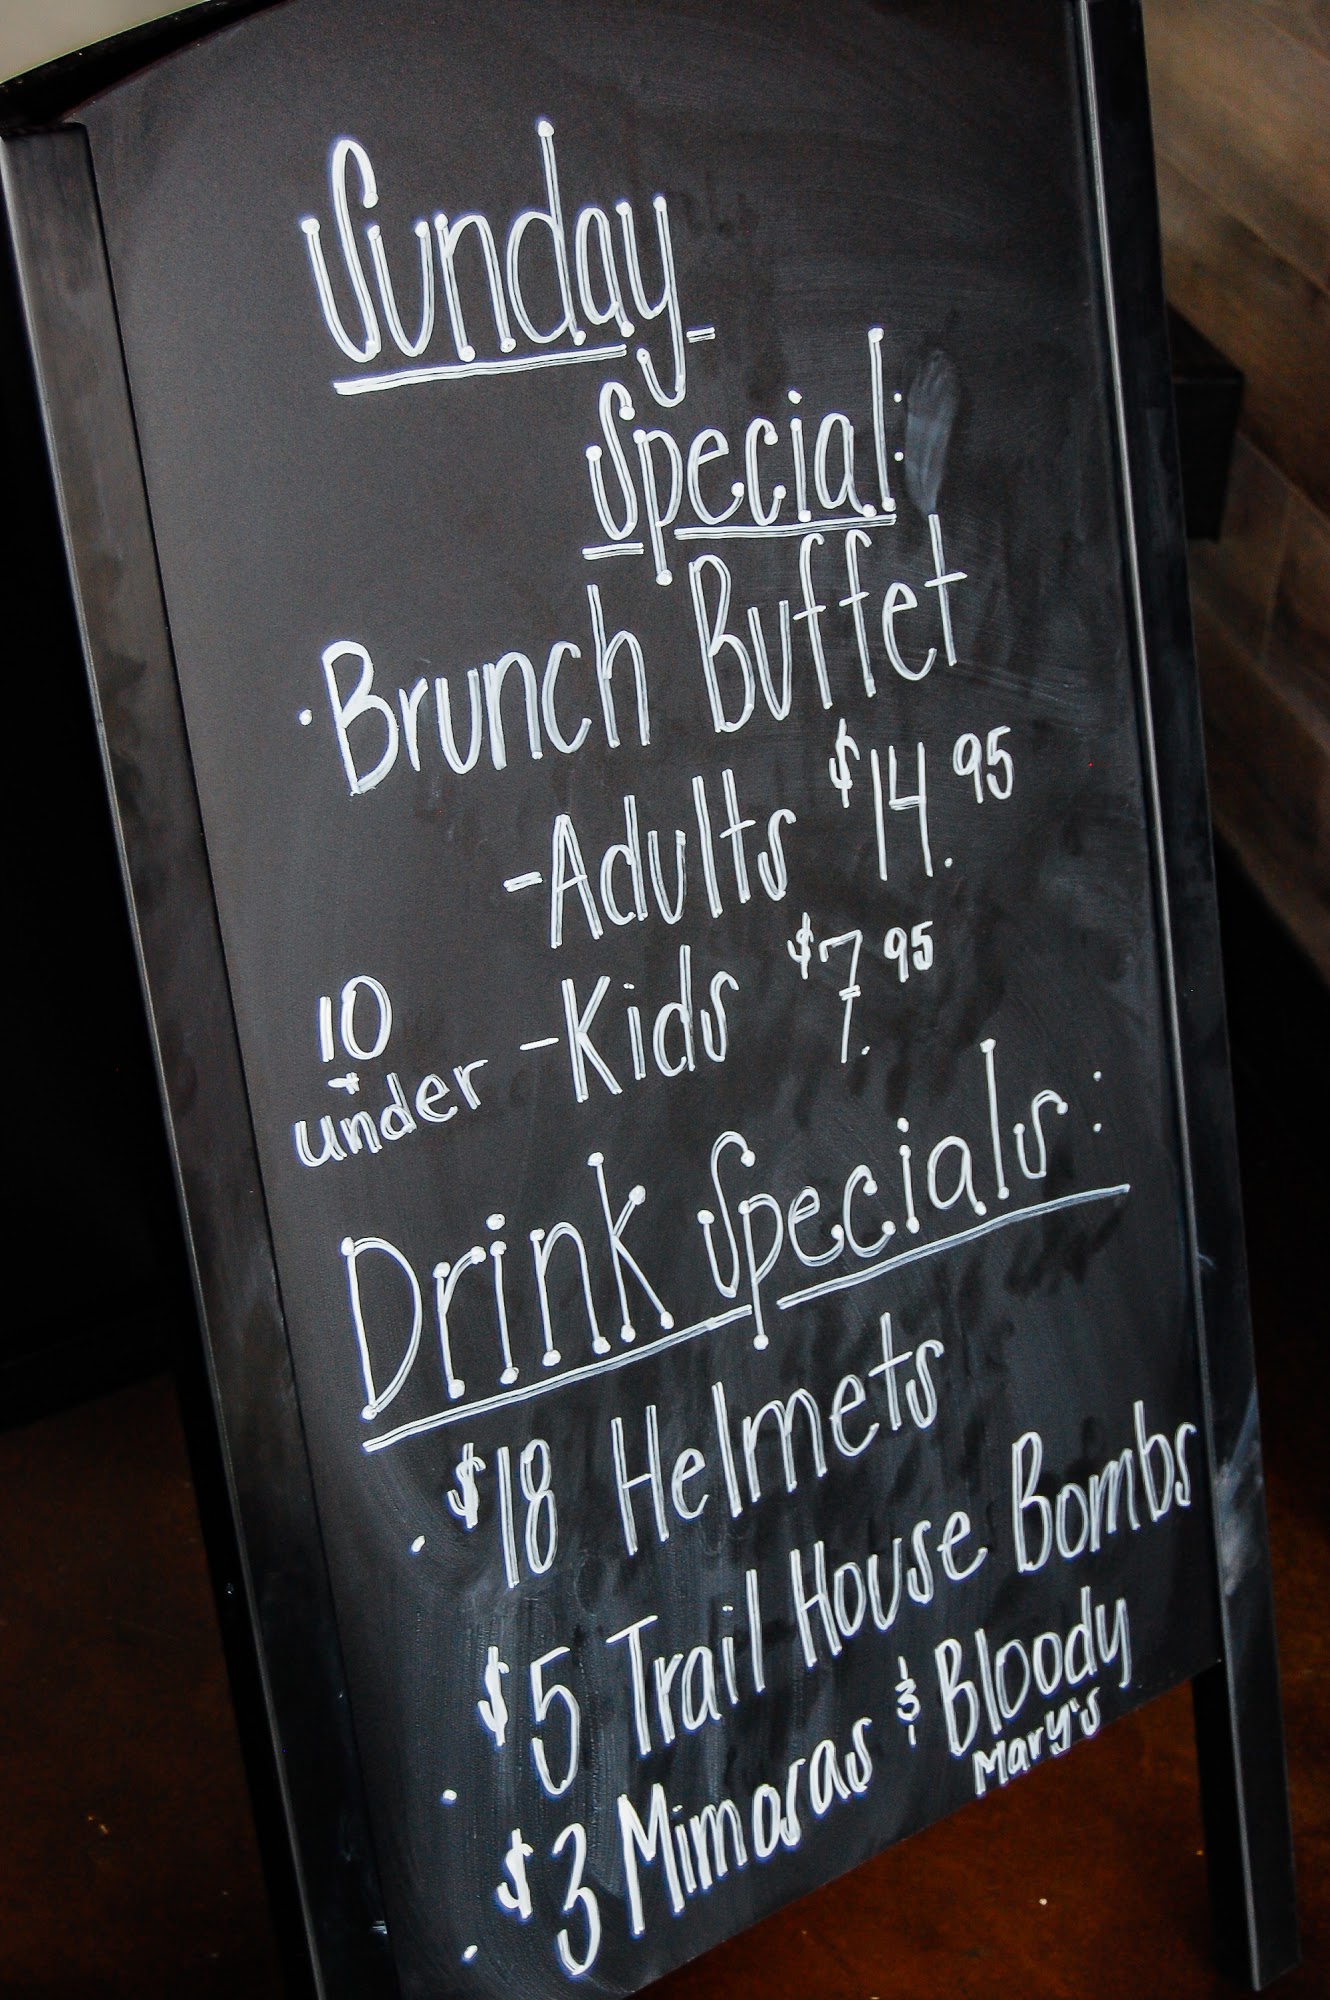 Sunday
Special:
·Brunch Buffet
-Adults $14.95
10 & under -Kids $7.95
Drink Specials:
· $18 Helmets
· $5 Trail House Bombs
· $3 Mimosas & Bloody
Mary's